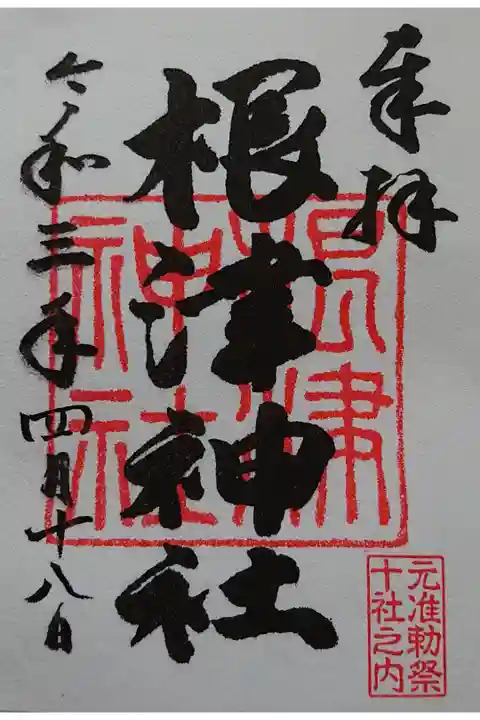 奉拝
根津神社
根津神社
令和三年四月十八日
元准勅祭
十社之内